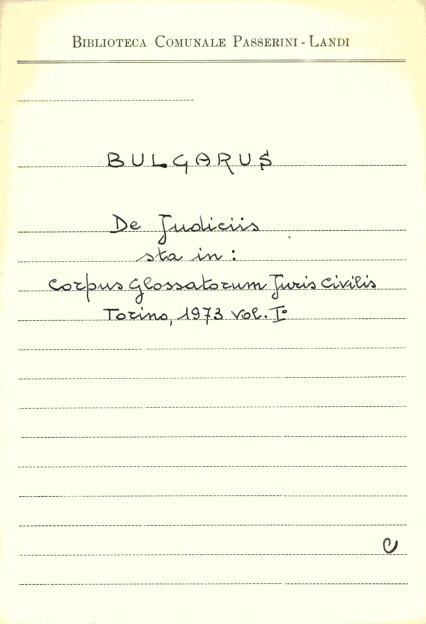 BIBLIOTECA COMUNALE PASSERINI - LANDI
BULGARUS
De Judiciis
sta in:
Corpus Glossatorum Juris Civilis
Torino, 1973 vol. I°
C